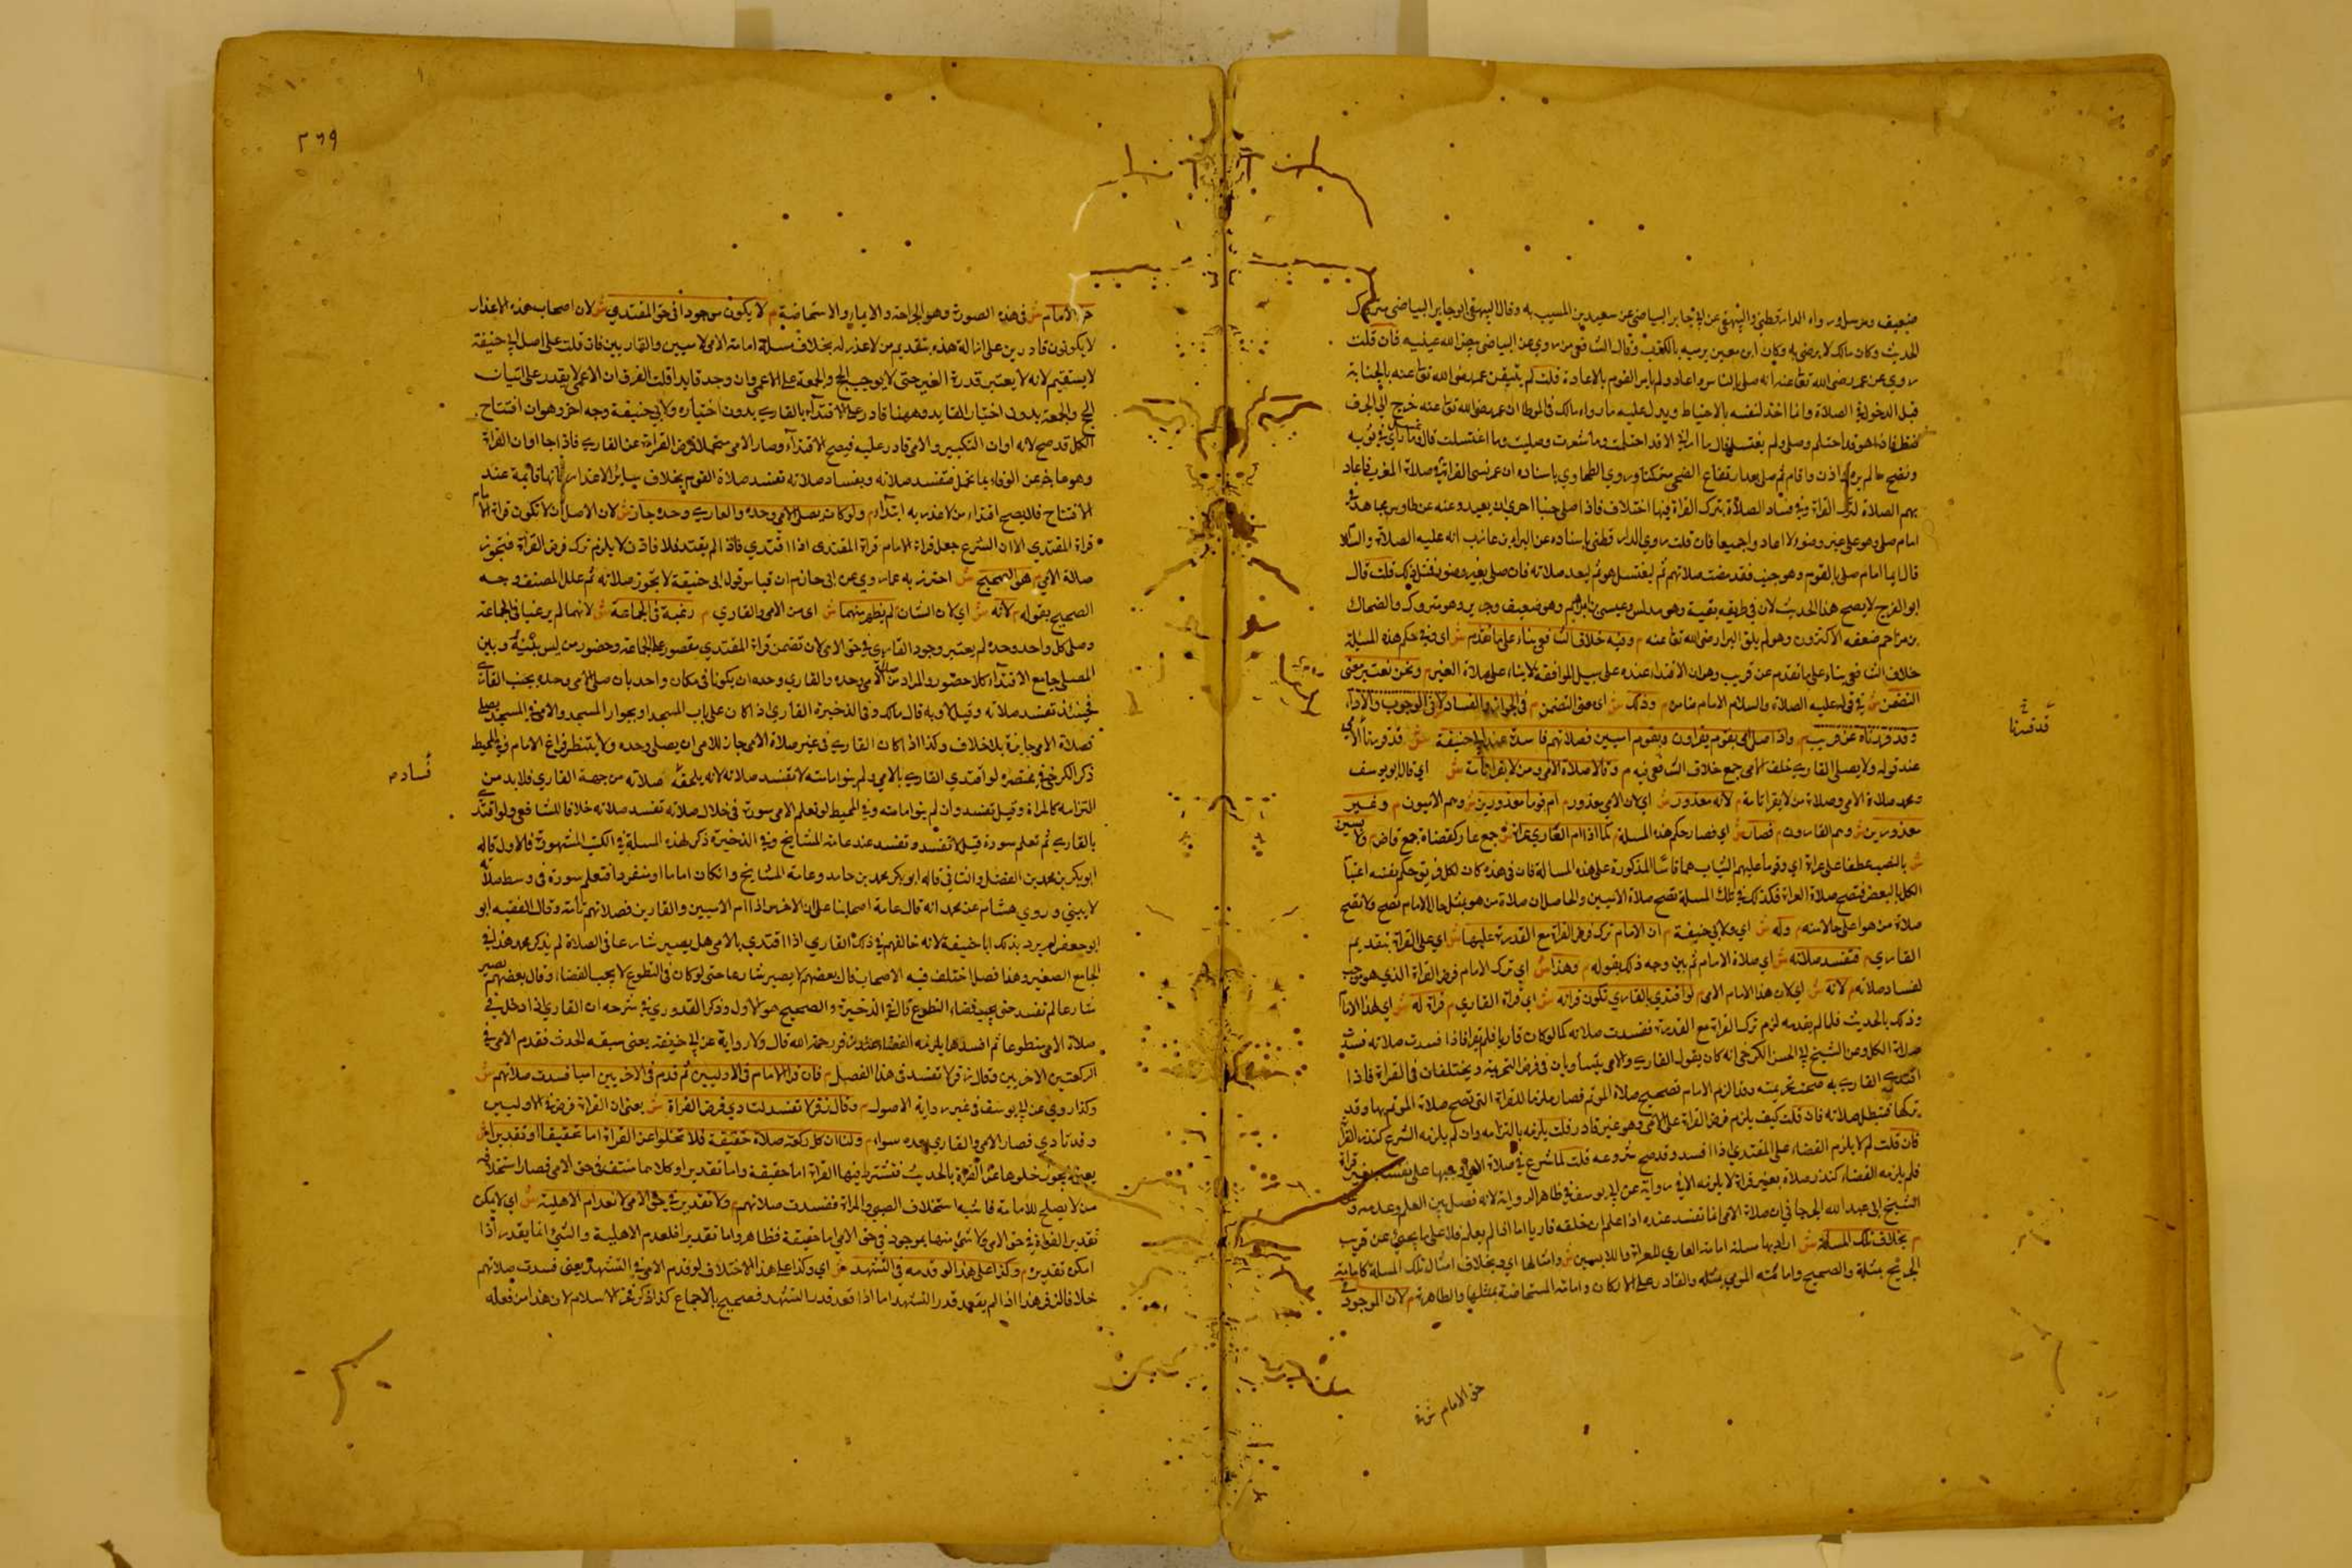 ضعيف ومرسل ورواه الدارقطني والبيهقي عن ابي جابر البياضي عن سعيد بن المسيب به وقال البيهقي ابو جابر البياضي متروك
الحديث وكان مالك لا يرضى به وكان ابن معين يرميه بالكذب وقال الشافعي من روى عن البياضي بيض الله عينيه فان قلت
روي عن عمر رضى الله تعا عنه انه صلى بالناس واعاد ولم يامر القوم بالاعادة قلت لم يتيقن عمر رضى الله تعا عنه بالجنابة
قبل الدخول في الصلاة وانما اخذ لنفسه بالاحتياط ويدل عليه ما رواه مالك في الموطا ان عمر رضى الله تعا عنه خرج الى الجرف
فنظر فاذا هو قد احتلم وصلى ولم يغتسل فقال ما اراني الا قد احتلمت وما شعرت وصليت وما اغتسلت قال فغسل ما راي في ثوبه
ونضح ما لم يره واذن واقام ثم صلى بعد ارتفاع الضحى متمكنا وروي الطحاوي باسناده ان عمر نسى القراة في صلاة المغرب فاعاد
بهم الصلاة لترك القراة وفي فساد الصلاة بترك القراة فيها اختلاف فاذا صلى جنبا احرى ان يعيد وعنه عن طاوس ومجاهد في
امام صلى وهو على غير وضوء لا اعاد واجميعا فان قلت روي الدارقطنى باسناده عن البراء بن عازب انه عليه الصلاة والسلام
قال ايما امام صلى بالقوم وهو جنب فقد مضت صلاتهم ثم ليغتسل هو ثم ليعد صلاته فان صلى بغير وضوء فمثل ذلك قلت قال
ابو الفرج لا يصح هذا الحديث لان في طريقه بقية وهو مدلس وعيسى بن ابراهيم وهو ضعيف وجويبر وهو متروك والضحاك
بن مزاحم ضعفه الاكثرون وهو لم يلق البرا رضى الله تعا عنه م وفيه خلاف الشافعي بناء على ما تقدم ش اى وفي حكم هذه المسئلة
خلاف الشافعي بناء على ما تقدم عن قريب وهو ان الاقتداء عنده على سبيل الموافقة لا بناء على صلاة الغير م ونحن نعتبر معنى
التضمن ش في قوله عليه الصلاة والسلام الامام ضامن م وذلك ش اى معنى التضمن م في الجواز والفساد لا في الوجوب والاداء
وقد قررناه عن قريب م واذا صلى امي بقوم يقراون وبقوم اميين فصلاتهم فاسدة عند ابي حنيفة ش قد قررنا الامى
عند قوله ولا يصلى القاري خلف الامى جمع خلاف الشافعي فيه م وقالا صلاة الامى ومن لا يقرا تامة ش اي قال ابو يوسف
ومحمد صلاة الامى وصلاة من لا يقرا تامة م لانه معذور ش اى لان الامى معذور م ام قوما معذورين ش وهم الاميون م وغير
معذورين ش وهم القارون م فصار ش اى فصار حكم هذه المسلة م كما اذا ام العاري عراة ش جمع عار كقضاة جمع قاض م ولابسين
ش بالنصب عطفا على عراة اي وقوما عليهم الثياب
الكل بالبعض فتصح صلاة العراة فكذلك في تلك المسلة تصح صلاة الاميين والحاصل ان صلاة من هو بمثل حال الامام تصح ولا تصح
صلاة من هو اعلى حالا منه م وله ش اي ولابي حنيفة م ان الامام ترك فرض القراة مع القدرة عليها ش اي على القراة بتقديم
القاري م فتفسد صلاته ش اي صلاة الامام ثم بين وجه ذلك بقوله م وهذا ش اي ترك الامام فرض القراة الذي هو موجب
لفساد صلاته م لانه ش اي لان هذا الامام الامى م لو اقتدي بالقاري تكون قراته ش اى قراة القاري م قراة له ش اى لهذا الامام
وذلك بالحديث فلما لم يقدمه لزم ترك القراة مع القدرة ففسدت صلاته كما لو كان قاريا فلم يقرا فاذا فسدت صلاته فسدت
صلاة الكل وعن الشيخ ابي الحسن الكرخي انه كان يقول القاري والامى يتساويان في فرض التحريمة ويختلفان في القراة فاذا
اقتدي القاري به صحت تحريمته وقد الزم الامام تصحيح صلاة المؤتم فصار ملزما للقراة التى تصح صلاة المؤتم بها وقد
تركها فتبطل صلاته فان قلت كيف يلزم فرض القراة على الامى وهو غير قادر قلت يلزمه بالتزامه وان لم يلزمه الشرع كنذر القران
فان قلت لم لا يلزم القضاء على المقتدي اذا افسد وقد صح شروعه قلت لما شرع في صلاة الامى اوجبها على نفسه بغير قراة
فلم يلزمه القضاء كنذر صلاة بغير قراة لا يلزمه الا في رواية عن ابي يوسف في ظاهر الرواية لانه فصل بين العلم وعدمه وعن
الشيخ ابى عبد الله الجرجاني ان صلاة الامى انما تفسد عنده اذا علم ان خلفه قاريا اما اذا لم يعلم فلا على ما يجئ عن قريب
م بخلاف تلك المسلة ش اراد بها مسلة امامة العاري للعراة واللابسين م وامثالها اى وبخلاف امثال تلك المسلة كامامة
الجريح بمثله والصحيح وامامته المومي بمثله والقادر على الاركان وامامة المستحاضة بمثلها والطاهرة م لان الموجود في
قد قررنا
حق الامام ش في
٣٦٩
حق الامام ش في هذه الصورة وهو الجراحة والايماء والاستحاضة م لا يكون موجودا في حق المقتدي ش لان اصحاب هذه الاعذار
لا يكونون قادرين على ازالة هذه بتقديم من لا عذر له بخلاف مسلة امامة الامى لاميين والقاريين فان قلت على اصل ابي حنيفة
لا يستقيم لانه لا يعتبر قدرة الغير حتى لا يوجب الحج والجمعة على الاعمى وان وجد قايدا قلت الفرق ان الاعمى لا يقدر على اتيان
الحج والجمعة بدون اختيار القايد وههنا قادر على الاقتداء بالقاري بدون اختياره ولابي حنيفة وجه اخر وهو ان افتتاح
الكل قد صح لانه اوان التكبير والامى قادر عليه فيصح الاقتداء وصار الامى متحملا فرض القراة عن القاري فاذا جا اوان القراة
وهو عاجز عن الوفاء بما تحمل فتفسد صلاته وبفساد صلاته تفسد صلاة القوم بخلاف ساير الاعذار لانها قايمة عند
الافتتاح فلا يصح اقتداء من لا عذر به ابتداء م ولو كان يصلى الامى وحده والقاري وحده جاز ش لان الاصل ان لا تكون قراة الامام
قراة المقتدي الا ان الشرع جعل قراة الامام قراة المقتدى اذا اقتدي فاذا لم يقتد فلا فاذن لا يلزم ترك فرض القراة فتجوز
صلاة الامى م هو الصحيح ش احترز به عما روي عن ابى حازم ان قياس قول ابى حنيفة لا تجوز صلاته ثم علل المصنف وجه
الصحيح بقوله م لانه ش اي لان الشان م لم يظهر منهما ش اى من الامى والقاري م رغبة في الجماعة ش لانهما لم يرغبا في الجماعة
وصلى كل واحد وحده لم يعتبر وجود القاري في حق الامى لان تضمن قراة المقتدي مقصور على الجماعة وحضور من ليس بينه وبين
المصلى جامع الاقتداء كلا حضور والمراد من صلاة الامى وحده والقاري وحده ان يكونا في مكان واحد بان صلى الامى وحده بجنب القاري
فحينئذ تفسد صلاته وقيل لا وبه قال مالك وفي الذخيرة القاري اذا كان على باب المسجد او بجوار المسجد والامى في المسجد يصلى
فصلاة الامى جايزة بلا خلاف وكذا اذا كان القاري في غير صلاة الامى جاز للامى ان يصلى وحده ولا ينتظر فراغ الامام وفي المحيط
ذكر الكرخي في مختصره لو اقتدي القاري بالامى ولم ينو امامته لا تفسد صلاته لانه يلحقه صلاته من جهة القاري فلا بد من
التزامه كالمراة وقيل تفسد وان لم ينو امامته وفي المحيط لو تعلم الامى سورة في خلال صلاته تفسد صلاته خلافا للشافعي ولو اقتدي
بالقاري ثم تعلم سورة قيل لا تفسد وتفسد عند عامة المشايخ وفي الذخيرة ذكر لهذه المسلة في الكتب المشهورة فالاول قاله
ابو بكر بن محمد بن الفضل والثاني قاله ابو بكر محمد بن حامد وعامة المشايخ وان كان اماما او منفردا فتعلم سورة في وسط صلاته
لا يبني وروي هشام عن محمد انه قال عامة اصحابنا على ان الاخرس اذا ام الاميين والقارين فصلاتهم تامة وقال الفقيه ابو
ابو جعفر لم يرد بذلك ابا حنيفة لانه خالفهم في ذلك القاري اذا اقتدي بالامى هل يصير شارعا في الصلاة لم يذكر محمد هذا في
الجامع الصغير وهذا فصل اختلف فيه الاصحاب قال بعضهم لا يصير شارعا حتى لو كان في التطوع لا يجب القضاء وقال بعضهم يصير
شارعا ثم تفسد حتى يجب قضاء التطوع قال في الذخيرة والصحيح هو الاول وذكر القدوري في شرحه ان القاري اذا دخل في
صلاة الامى متطوعا ثم افسدها يلزمه القضاء عند زفر رحمة الله قال ولا رواية عن ابي حنيفة يعنى سبقه الحدث فقدم الامى في
الركعتين الاخريين وقال زفر لا تفسد في هذا الفصل م فان قرا الامام في الاوليين ثم قدم في الاخريين اميا فسدت صلاتهم ش
وكذا روي عن ابي يوسف في غير رواية الاصول م وقال زفر لا تفسد لتادي فرض القراة ش يعنى ان القراة فرض في الاوليين
وقد تادي فصار الامى والقاري بعده سواء م ولنا ان كل ركعة صلاة حقيقة فلا تخلوا عن القراة اما تحقيقا او تقديرا ش
يعنى لا يجوز خلوها عن القراة بالحديث فتشترط فيها القراة اما حقيقة واما تقديرا وكلاهما منتف في حق الامى فصار استخلافه
من لا يصلح للامامة فاشبه استخلاف الصبي والمراة ففسدت صلاتهم م ولا تقدير في حق الامى لانعدام الاهلية ش اي لا يمكن
تقدير القراة في حق الامى ولا شئ منها بموجود في حق الامى اما حقيقة فظاهر واما تقديرا فلعدم الاهلية والشئ انما يقدر اذا
امكن تقديره م وكذا على هذا لو قدمه في التشهد ش اي وكذا على هذا الاختلاف لو قدم الامى في التشهد يعنى فسدت صلاتهم
خلافا لزفر هذا اذا لم يقعد قدر التشهد اما اذا قعد قدر التشهد فصحيح بالاجماع كذا ذكر فخر الاسلام لان هذا من فعله
فساد م